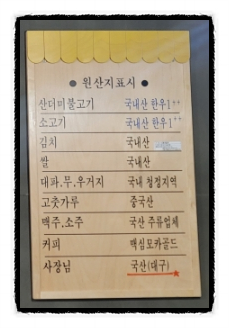 ● 원산지표시 ●
산더미불고기 국내산 한우1++
소고기 국내산 한우1++
김치 국내산
쌀 국내산
대파.무.우거지 국내 청정지역
고춧가루 중국산
맥주,소주 국산 주류업체
커피 맥심모카골드
사장님 국산(대구)